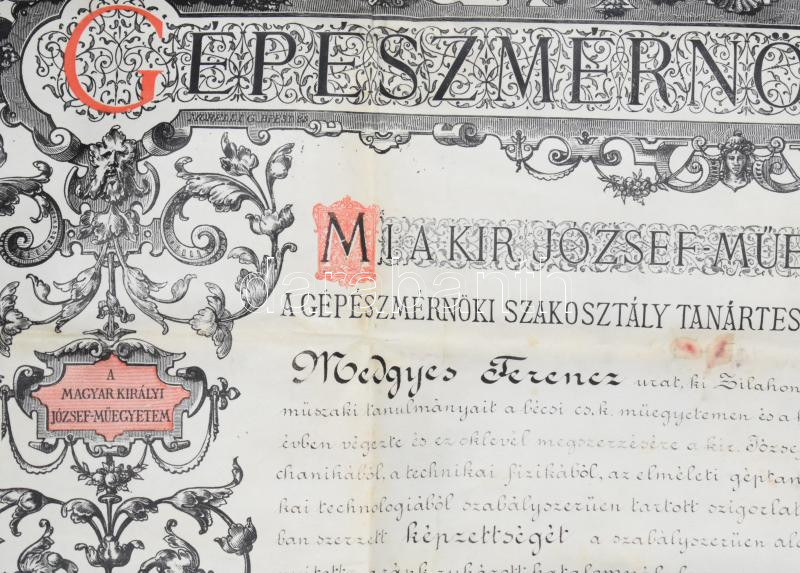 GÉPÉSZMÉRNÖ
MORELLI G. BPEST 88
MI A KIR JÓZSEF-MŰE
A GÉPÉSZMÉRNÖKI SZAKOSZTÁLY TANÁRTES
Medgyes Ferencz urat, ki Zilahon
műszaki tanulmányait a bécsi cs. k. műegyetemen és a
évben végezte és ez oklevél megszerzésére a kir. Józse
chanikából, a technikai fizikából, az elméleti géptan
kai technologiából szabályszerűen tartott szigorlat
ban szerzett képzettségét a szabályszerűen
A
MAGYAR KIRÁLYI
JÓZSEF-MŰEGYETEM
darabanth